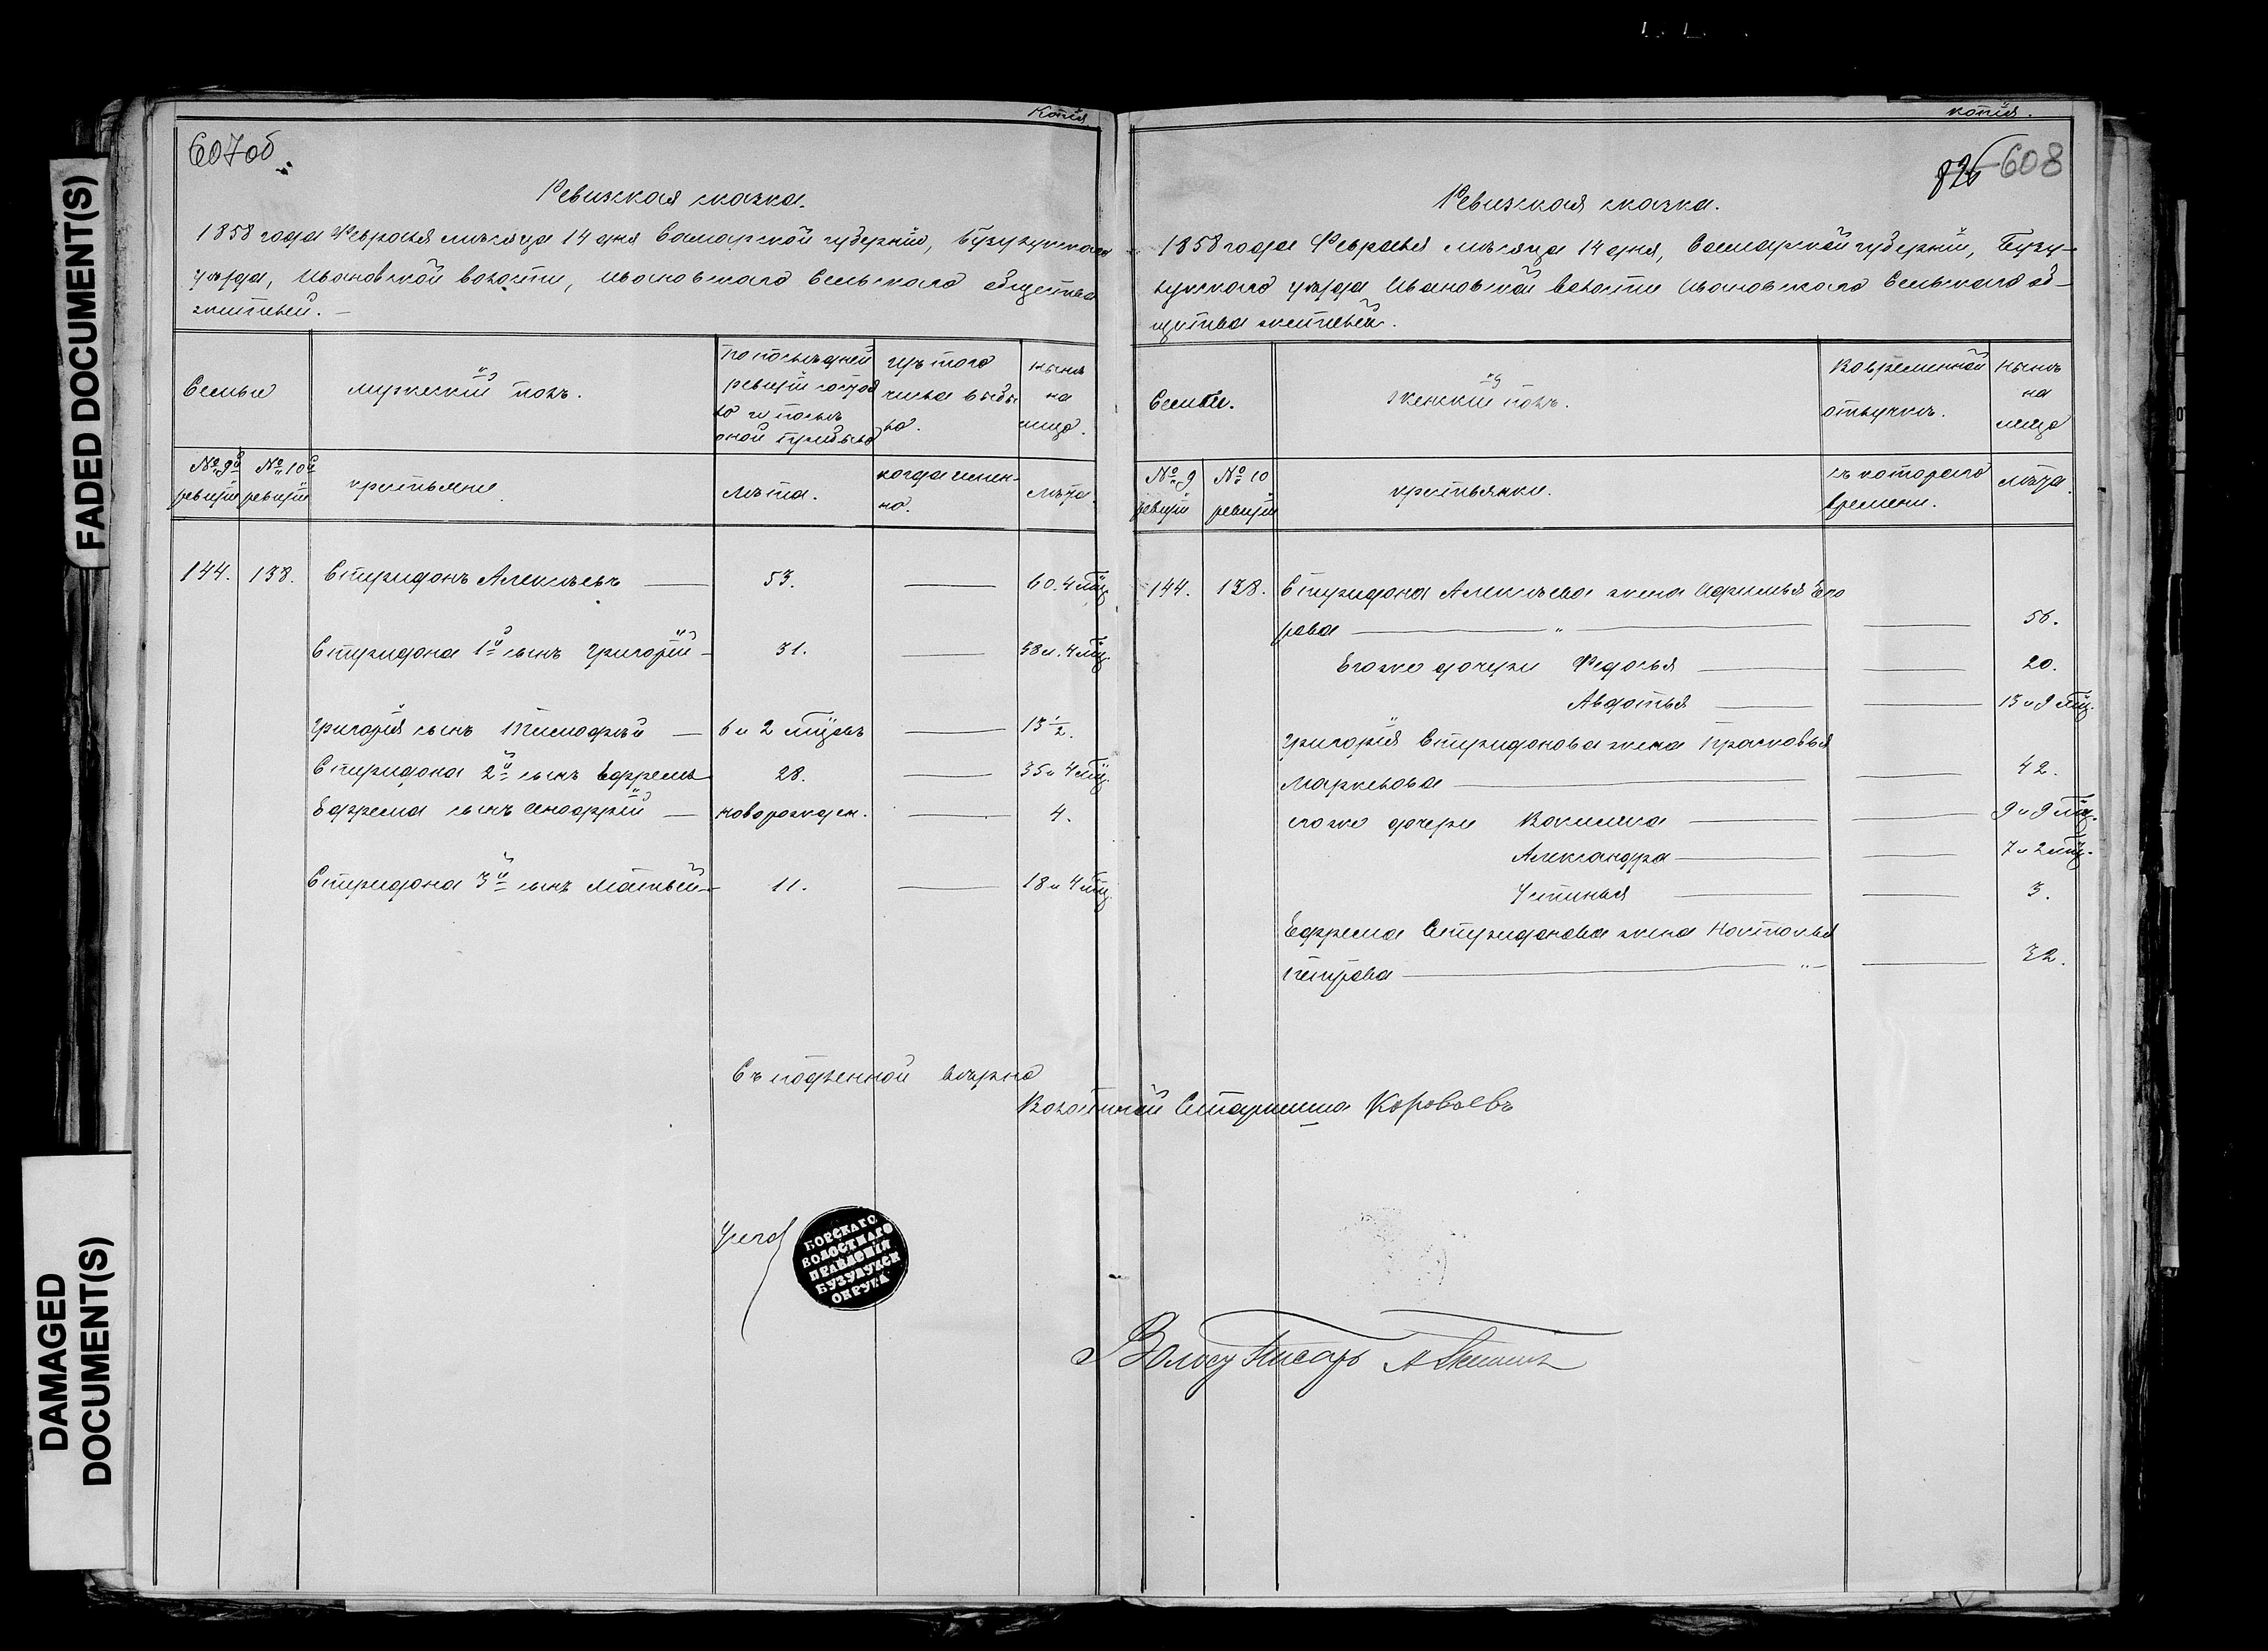 FADED DOCUMENT(S)
DAMAGED
DOCUMENT(S)
Копія
607об
Ревизская сказка.
1858 года Февраля мѣсяца 14 дня Самарской губерніи, Бузулукскаго
уѣзда, Ивановской волости, Ивановскаго Сельскаго общества
жителей.
Семьи
мужескій полъ.
По послѣдней
ревизіи состоя
ло и послѣ
оной прибыло
изъ того
числа выбы
ло.
нынѣ
на
лицо.
№ 9й
ревизіи
№ 10й
ревизіи
крестьяне
лѣта.
когда имен-
но.
лѣта.
144. 138. Спиридонъ Алексѣевъ 53. 60. 4 мѣц
Спиридона 1й сынъ Григорій 31. 38 и 4 мѣц.
Григорія сынъ Тимофѣй 6 и 2 мѣцовъ 13 1/2.
Спиридона 2й сынъ Ефремъ 28. 35 и 4 мѣц.
Ефрема сынъ Анофрій новорожден. 4.
Спиридона 3й сынъ Матвей 11. 18 и 4 мѣц.
Съ подленной вѣрно
Волостной Старшина Короваевъ
БОРСКАГО
ВОЛОСТНАГО
ПРАВЛЕНІЯ
БУЗУЛУКСК
ОКРУГА
копія.
826 608
Ревизская сказка.
1858 года Февраля мѣсяца 14 дня, Самарской губерніи, Бузу-
лукскаго уѣзда Ивановской волости Ивановскаго Сельскаго об-
щества жителей.
Семьи.
женскій полъ.
Во временной
отлучкѣ.
нынѣ
на
лицо
№ 9
ревизіи
№ 10
ревизіи
крестьянки.
съ котораго
времени.
лѣта.
144. 138. Спиридона Алексѣева жена Афимья Его
рова 56.
Его же дочери Федосья 20.
Авдотья 13 и 9 мѣц.
Григорія Спиридонова жена Прасковья
Маркелова 42.
его же дочери Вокилина 9 и 9 мѣц.
Александра 7 и 2 мѣц.
Устинья 3.
Ефрема Спиридонова жена Настасья
Петрова 32.
Волосн Писарь